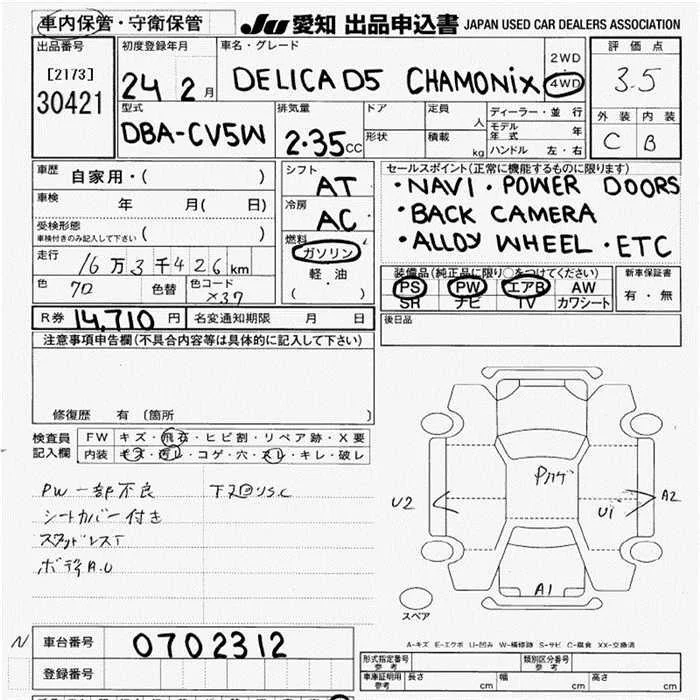 車内保管・守衛保管 JU 愛知 出品申込書 JAPAN USED CAR DEALERS ASSOCIATION
出品番号 初度登録年月 車名・グレード 2WD 評価点
[2173] 24 2月 DELICA D5 CHAMONIX 4WD 3.5
30421 型式 排気量 ドア 定員 人 ディーラー・並行 外装 内装
DBA-CV5W 2.35cc 形状 積載 kg モデル年式 年 C B
ハンドル 左・右
車歴 自家用・( ) シフト AT セールスポイント(正常に機能するものに限ります)
車検 年 月( 日) 冷房 AC ・NAVI・POWER DOORS
受検形態 ( ) ・BACK CAMERA
車検付きのみ記入して下さい 燃料 ・ALLOY WHEEL・ETC
走行 16万3千426km ガソリン 装備品(純正品に限り○をつけてください) 新車保証書
色 色替 色コード X37 軽・油 PS PW エアB AW 有・無
( ) SR ナビ TV カワシート
R券 14,710円 名変通知期限 月 日 後日品
注意事項申告欄(不具合内容等は具体的に記入して下さい)
修復歴 有 〔箇所 〕
検査員 FW キズ・飛石・ヒビ割・リペア跡・X要
記入欄 内装 キズ・汚レ・コゲ・穴・スレ・キレ・破レ
PW一部不良
シートカバー付き
スタッドレスT
ボディA.U
U2 U1 A2
A1
スペア
A-キズ E-エクボ U-凹み W-補修跡 S-サビ C-腐食 XX-交換済
N 車台番号 0702312
登録番号
形式指定番号 参考 類別区分番号 参考
車庫証明用 参考 長さ cm 幅 cm 高さ cm